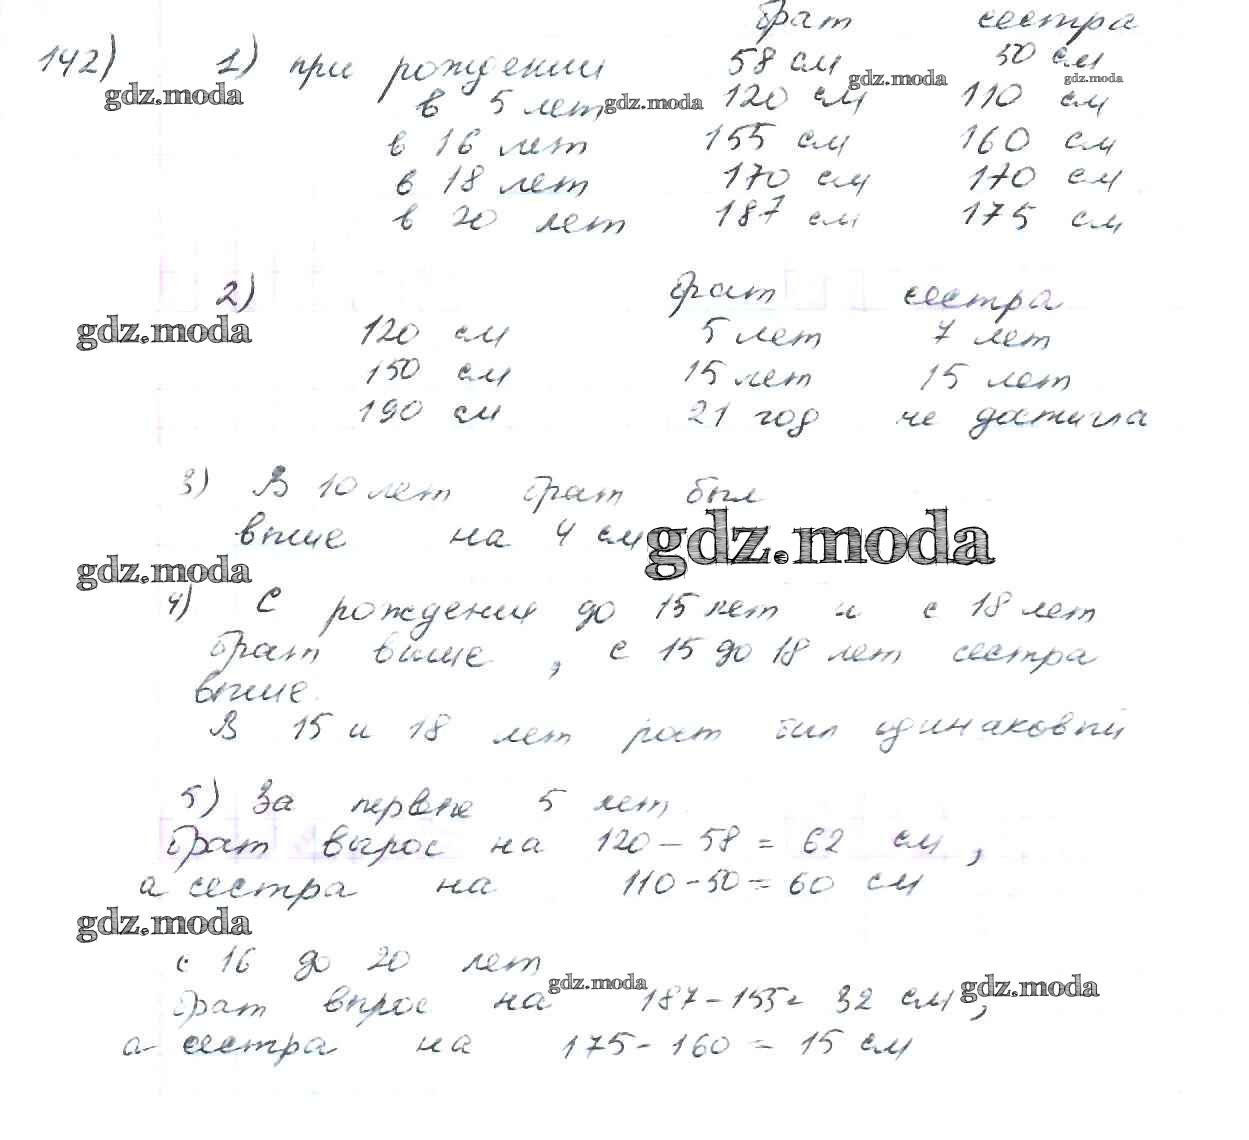 брат сестра
142) 1) при рождении 58 см 50 см
gdz.moda gdz.moda gdz.moda
в 5 лет gdz.moda 120 см 110 см
в 16 лет 155 см 160 см
в 18 лет 170 см 170 см
в 20 лет 187 см 175 см
2) брат сестра
gdz.moda 120 см 5 лет 7 лет
150 см 15 лет 15 лет
190 см 21 год не достигла
3) В 10 лет брат был
выше на 4 см gdz.moda
gdz.moda
4) С рождения до 15 лет и с 18 лет
брат выше, с 15 до 18 лет сестра
выше.
В 15 и 18 лет рост был одинаковый
5) За первые 5 лет
брат вырос на 120 - 58 = 62 см,
а сестра на 110 - 50 = 60 см
gdz.moda
с 16 до 20 лет
gdz.moda gdz.moda
брат вырос на 187 - 155 = 32 см,
а сестра на 175 - 160 = 15 см